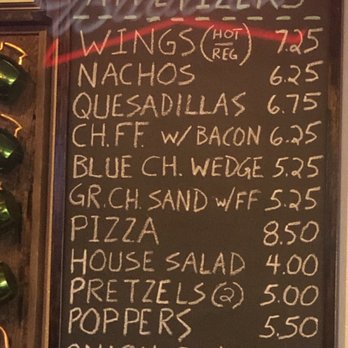 APPETIZERS
WINGS (HOT REG) 7.25
NACHOS 6.25
QUESADILLAS 6.75
CH.FF. W/ BACON 6.25
BLUE CH. WEDGE 5.25
GR.CH. SAND W/FF 5.25
PIZZA 8.50
HOUSE SALAD 4.00
PRETZELS (2) 5.00
POPPERS 5.50